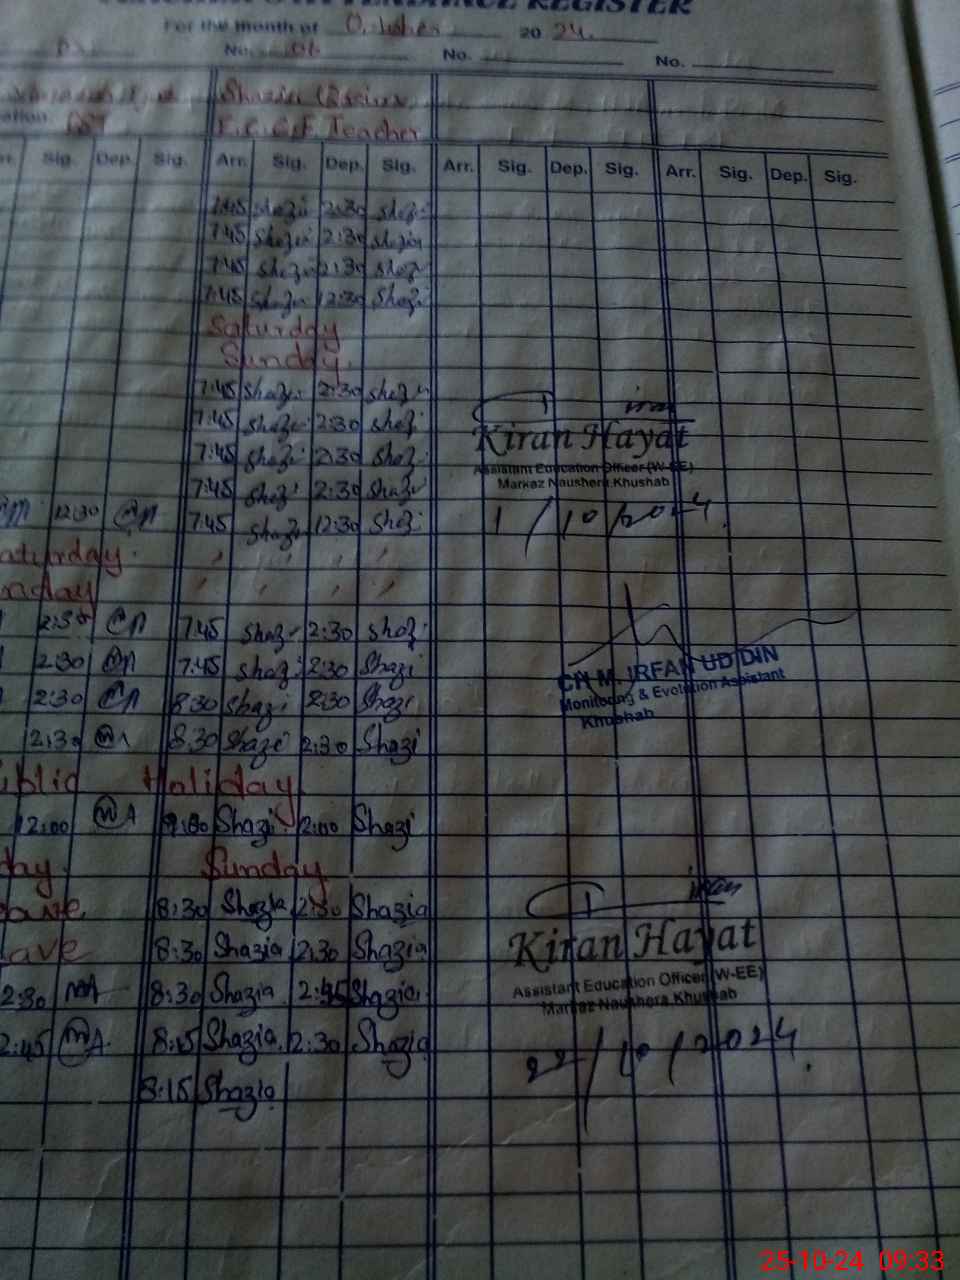 For the month of October 20 24.
No. 06 No. No.
Shazia
E.C.C.E Teacher
Sig. Dep. Sig. Arr. Sig. Dep. Sig. Arr. Sig. Dep. Sig. Arr. Sig. Dep. Sig.
7:45 Shazi 2:30 Shazi
7:45 Shazi 2:30 Shazia
7:45 Shazi 2:30 Shazi
7:45 Shazi 12:30 Shazi
Saturday
Sunday
7:45 Shazi 2:30 Shazi
7:45 Shazi 2:30 Shazi
7:45 Shazi 2:30 Shazi
7:45 Shazi 2:30 Shazi
12:30 7:45 Shazi 12:30 Shazi
Kiran Hayat
Assistant Education Officer (W-EE)
Markaz Naushera, Khushab
1/10/2024
aturday
nday
2:30 7:45 Shazi 2:30 Shazi
2:30 7:45 Shazi 2:30 Shazi
2:30 8:30 Shazi 2:30 Shazi
2:30 8:30 Shazi 2:30 Shazi
CH M. IRFAN UD DIN
Monitoring & Evolution Assistant
Khushab
ublic Holiday
12:00 Shazi 2:00 Shazi
day. Sunday
eave 8:30 Shazia 2:30 Shazia
eave 8:30 Shazia 2:30 Shazia
2:30 8:30 Shazia 2:45 Shazia
2:45 8:15 Shazia 2:30 Shazia
8:15 Shazia
Kiran Hayat
Assistant Education Officer (W-EE)
Markaz Naushera, Khushab
22/10/2024.
25-10-24 09:33